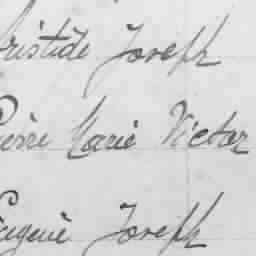 Aristide Joseph
Pierre Marie Victor
Eugène Joseph